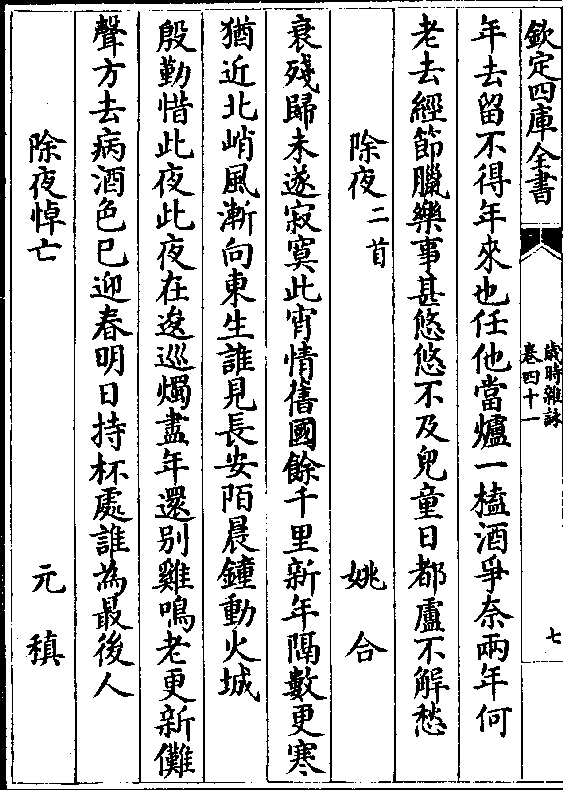 欽定四庫全書
歳時雜詠
卷四十一
七
年去留不得年來也任他當爐一榼酒爭奈兩年何
老去經節臘樂事甚悠悠不及兒童日都盧不解愁
除夜二首 姚合
衰殘歸未遂寂寞此宵情舊國餘千里新年隔數更寒
猶近北峭風漸向東生誰見長安陌晨鍾動火城
殷勤惜此夜此夜在逡巡燭盡年還别雞鳴老更新儺
聲方去病酒色已迎春明日持杯處誰為最後人
除夜悼亡 元稹